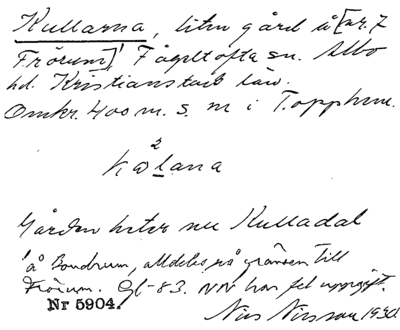 Kullarna, liten gård å [nr. 7
Frörum],¹ Fågeltofta sn. Albo
hd. Kristianstads län.
Omkr. 400 m. s. m i T.opphm.
2
kølana
Gården heter nu Kulladal
¹å Bondrum, alldeles på gränsen till
Frörum. Gl-83. NN har fel uppgift.
Nr 5904.
Nils Nilsson 1930.